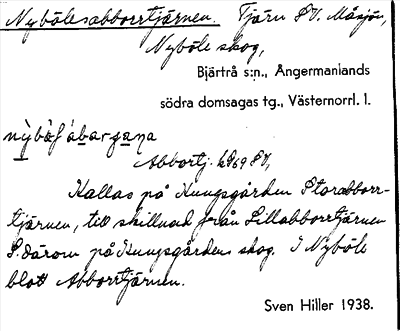 Nybölesabborrtjärnen. Tjärn SV. Måsjön,
Nyböle skog,
Bjärtrå s:n., Ångermanlands
södra domsagas tg., Västernorrl. l.
Abbortj. k 69 SV,
Kallas på Kungsgården Storabborr-
tjärnen, till skillnad från Lillabborrtjärnen
S. därom på Kungsgårdens skog. I Nyböle
blott Abborrtjärnen.
Sven Hiller 1938.